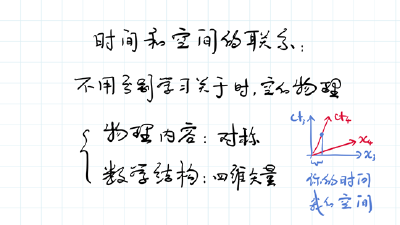 时间和空间的联系:
不用等到学习关于时,空的物理
物理内容:对称
数学结构:四维矢量
ct₁ ct₄
x₄
x₁
你的时间
我的空间